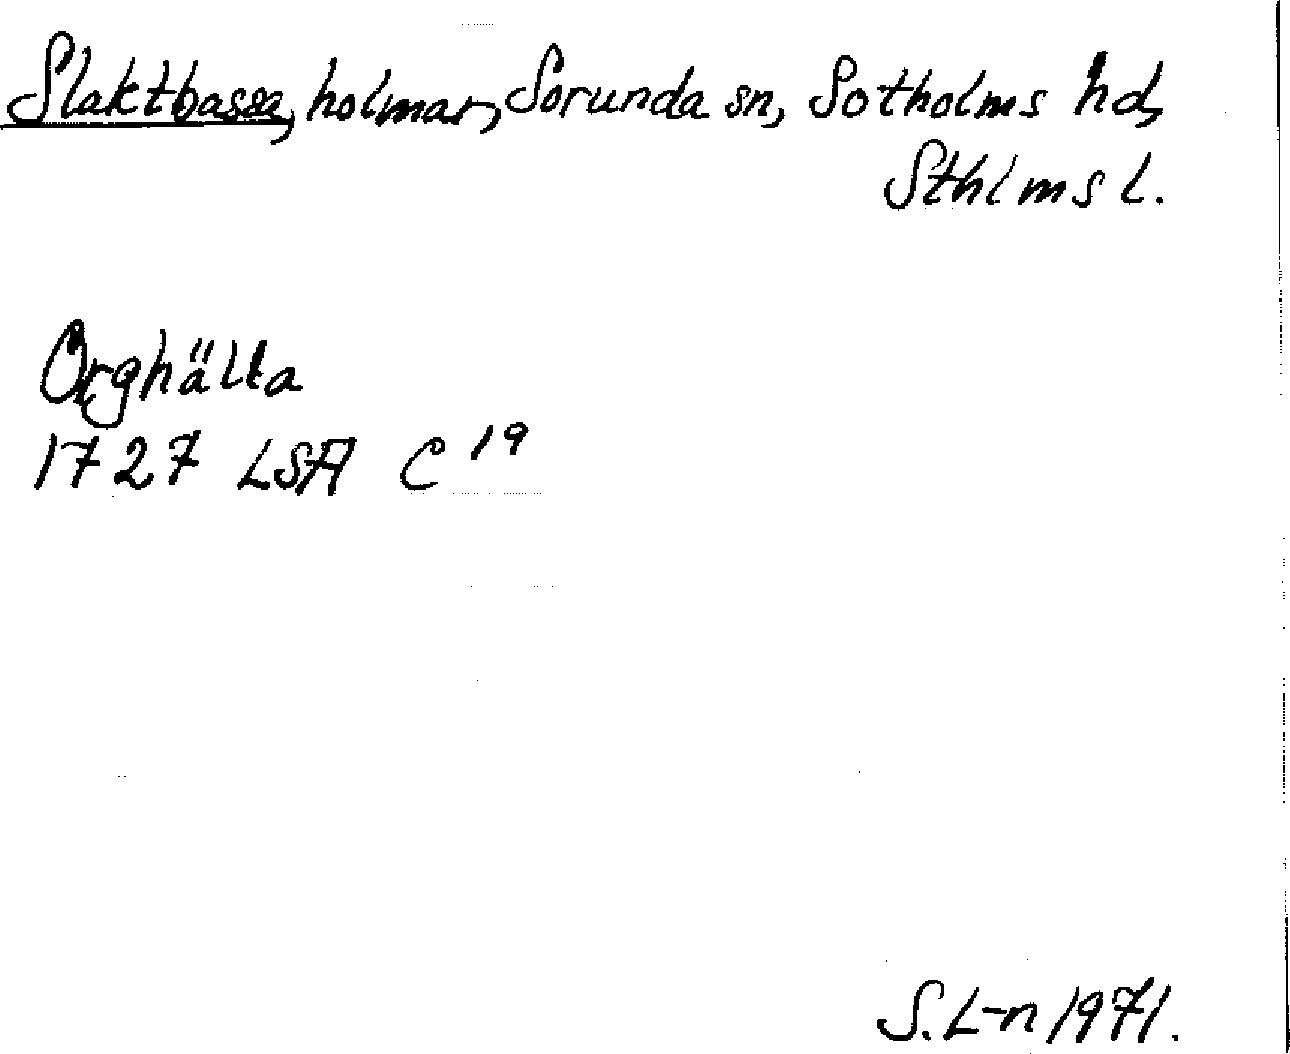 Slaktbassa, holmar, Sorunda sn, Sotholms hd,
Sthlms l.
Orghälla
1727 LSA C 19
S. L-n 1971.